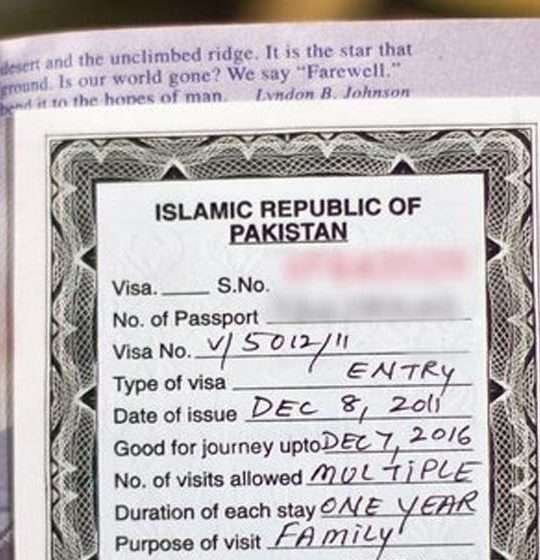 desert and the unclimbed ridge. It is the star that
ground. Is our world gone? We say “Farewell.”
bend it to the hopes of man. Lyndon B. Johnson
ISLAMIC REPUBLIC OF
PAKISTAN
Visa. ____ S.No.
No. of Passport
Visa No. V/5012/11
Type of visa ENTRY
Date of issue DEC 8, 2011
Good for journey upto DEC 7, 2016
No. of visits allowed MULTIPLE
Duration of each stay ONE YEAR
Purpose of visit FAMILY